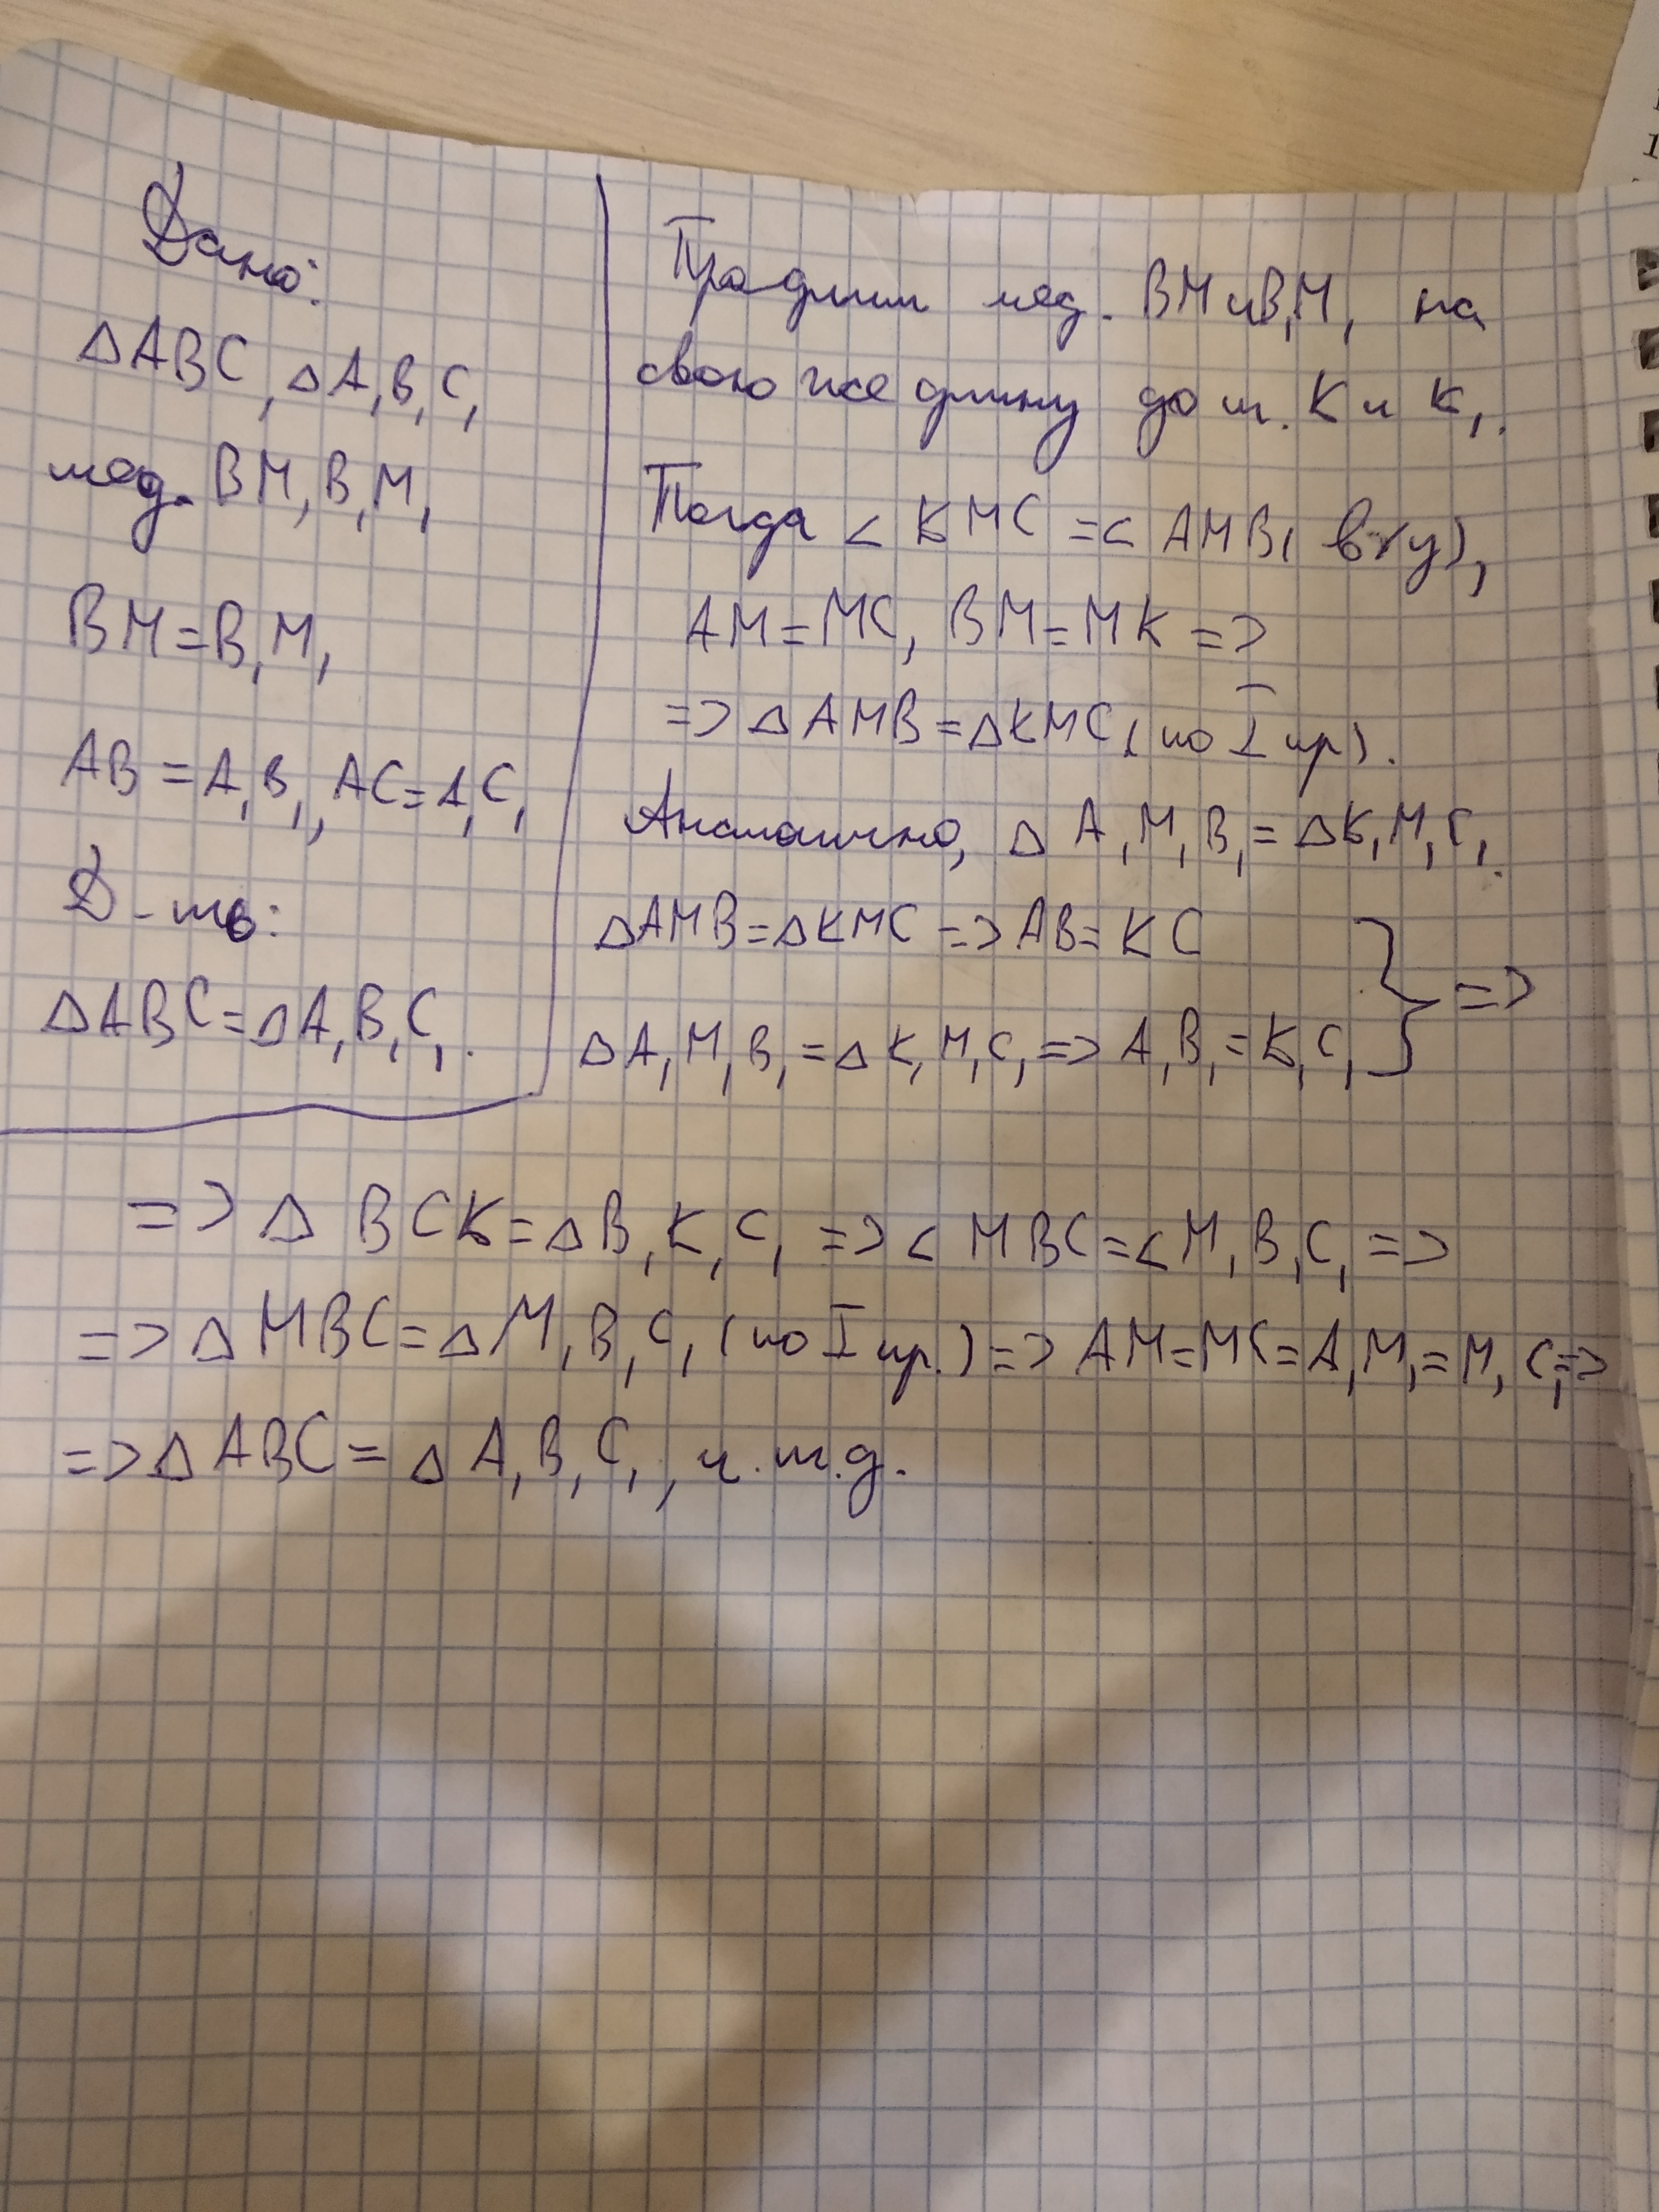 Дано:
△ABC, △A₁B₁C₁
мед. BM, B₁M₁
BM=B₁M₁
AB=A₁B₁, AC=A₁C₁
Д-ть:
△ABC=△A₁B₁C₁.
Продлим мед. BM и B₁M₁ на
свою же длину до т. K и K₁.
Тогда <KMC=<AMB( верт),
AM=MC, BM=MK =>
=> △AMB=△KMC (по I пр).
Аналогично, △A₁M₁B₁=△K₁M₁C₁.
△AMB=△KMC => AB=KC
△A₁M₁B₁=△K₁M₁C₁ => A₁B₁=K₁C₁ } =>
=> △BCK=△B₁K₁C₁ => <MBC=<M₁B₁C₁ =>
=> △MBC=△M₁B₁C₁ (по I пр.) => AM=MC=A₁M₁=M₁C₁ =>
=> △ABC=△A₁B₁C₁, ч.т.д.